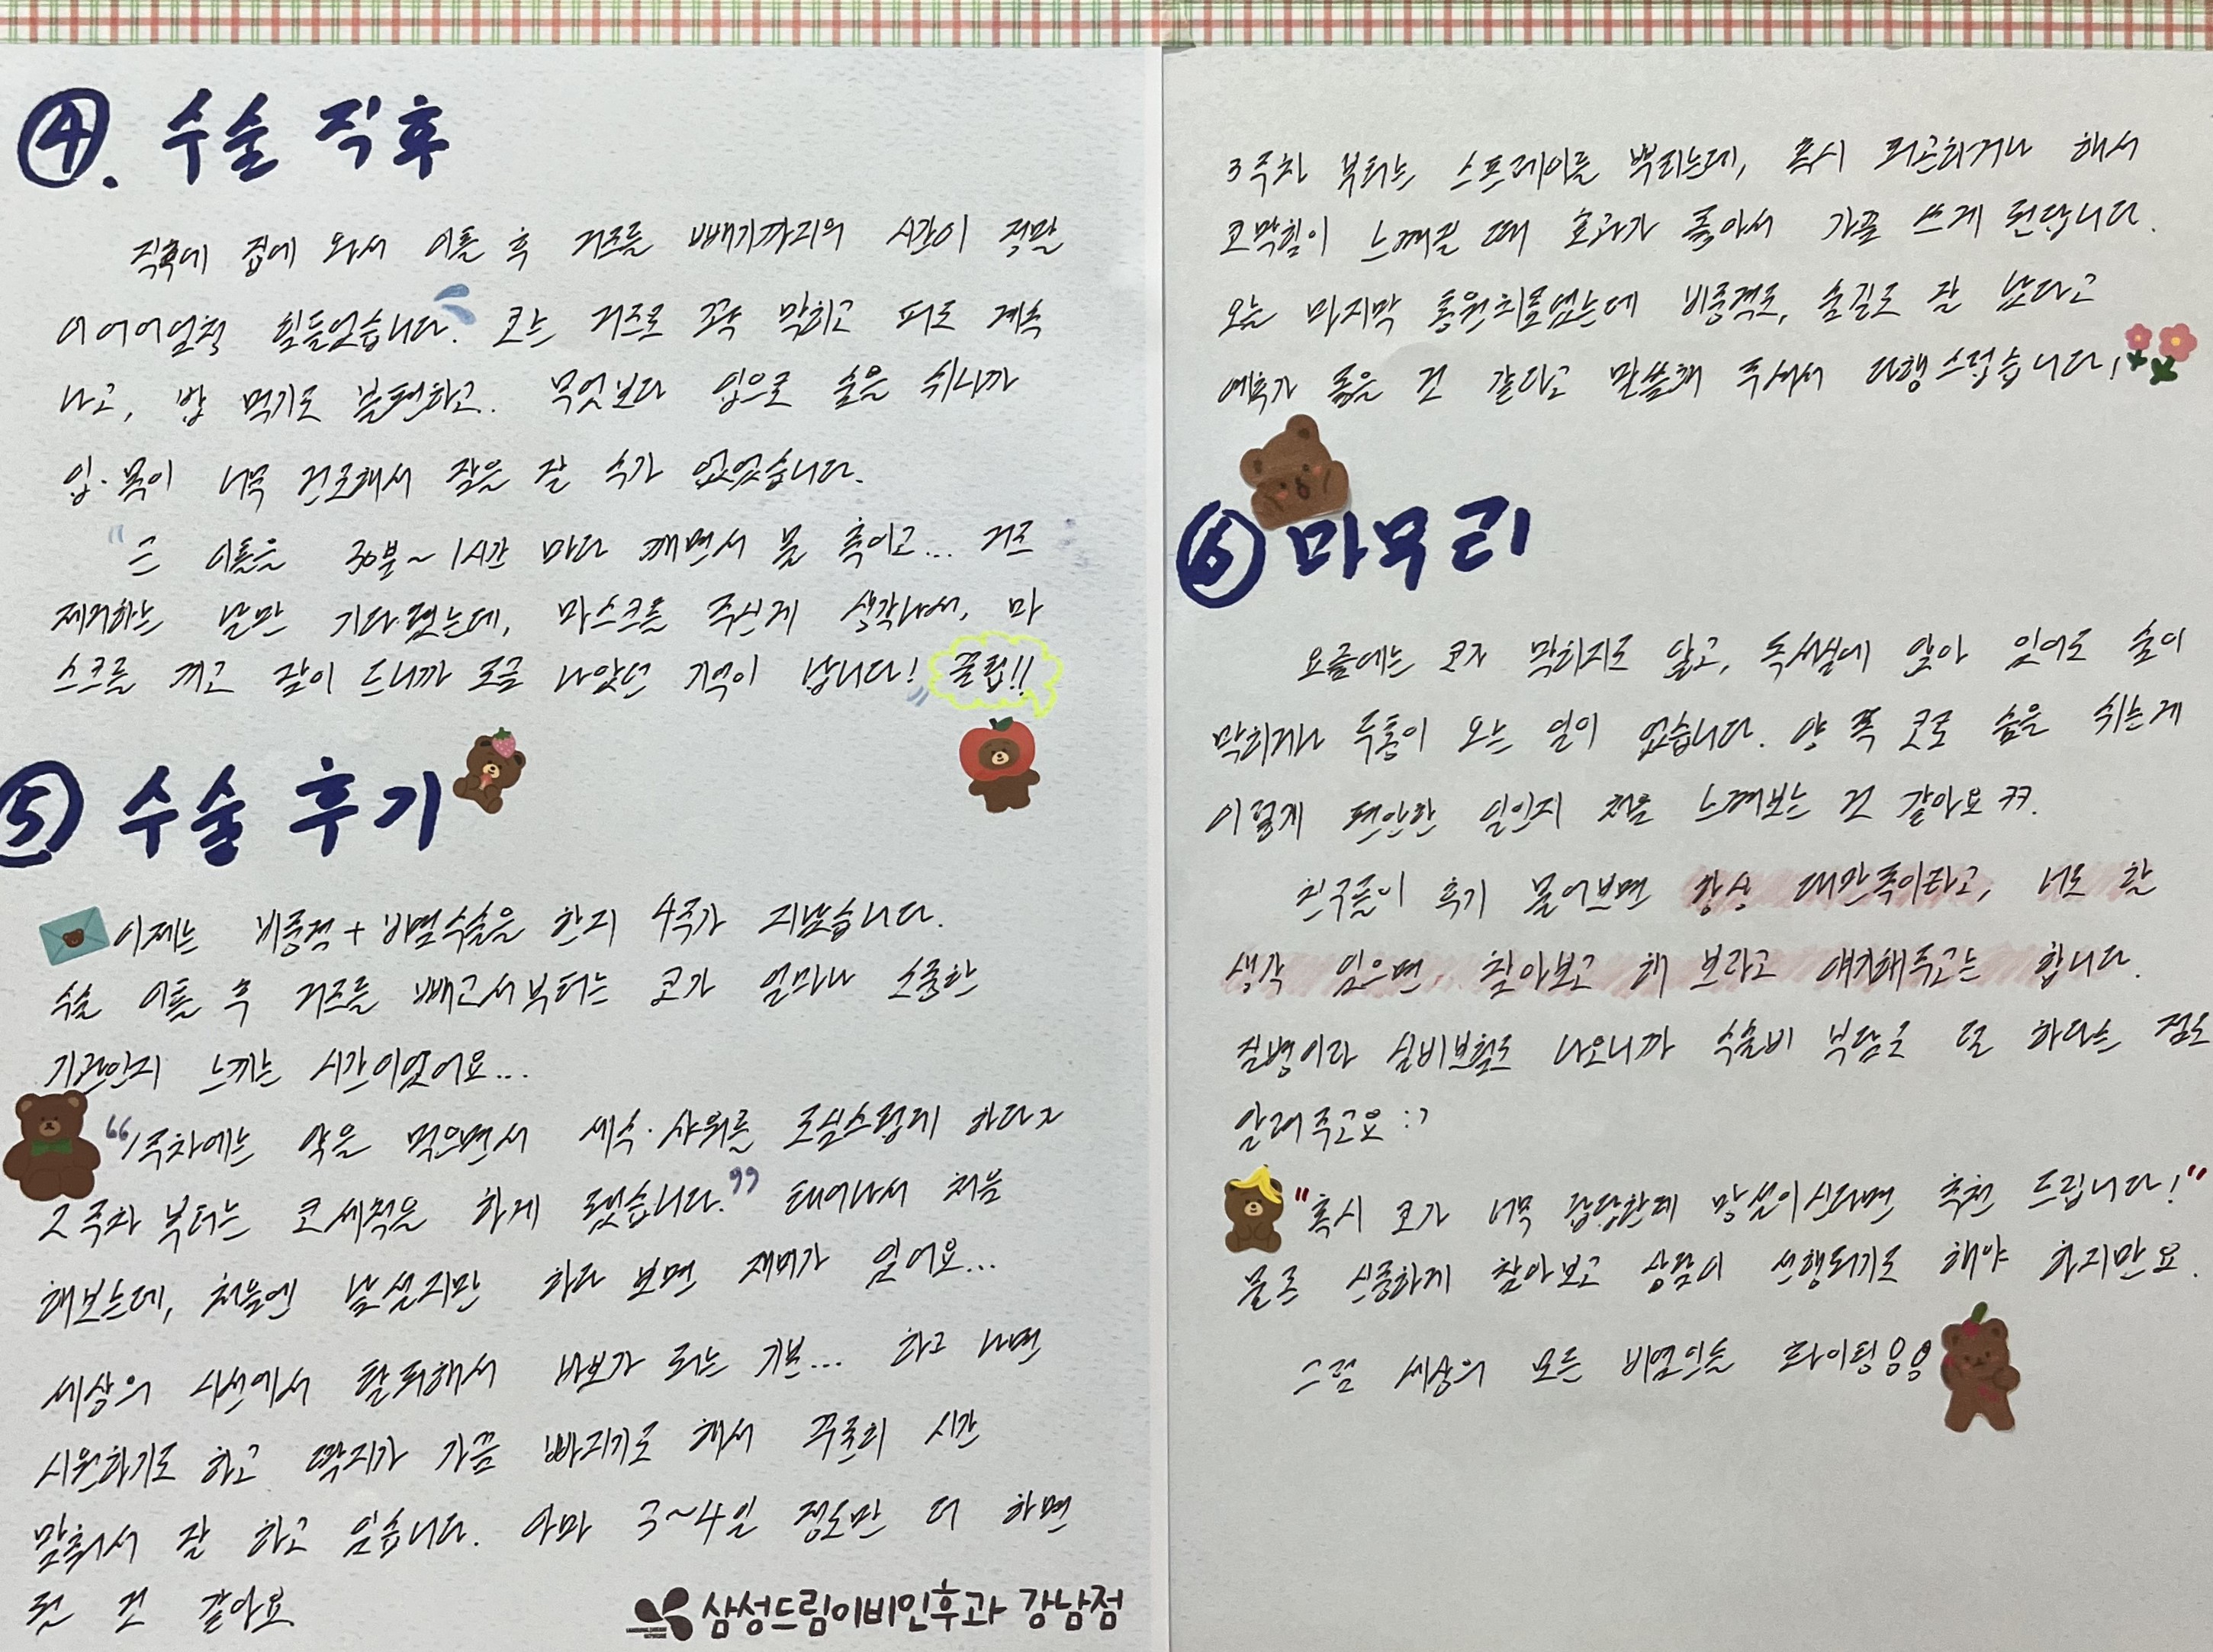 ④. 수술 직후
직후에 집에 와서 이틀 후 거즈를 빼기까지의 시간이 정말
어어어엄청 힘들었습니다. 코는 거즈로 꽉 막히고 피도 계속
나고, 밥 먹기도 불편하고. 무엇보다 입으로 숨을 쉬니까
입·목이 너무 건조해서 잠을 잘 수가 없었습니다.
"그 이틀은 30분~1시간 마다 깨면서 물 축이고... 거즈
제거하는 날만 기다렸는데, 마스크를 주신게 생각나서, 마
스크를 끼고 잠이 드니까 조금 나았던 기억이 납니다!" 꿀팁!!
⑤ 수술 후기
이제는 비중격+비염수술을 한지 4주가 지났습니다.
수술 이틀 후 거즈를 빼고서부터는 코가 얼마나 소중한
기관인지 느끼는 시간이었어요...
"1주차에는 약을 먹으면서 세수·샤워를 조심스럽게 하다가
2주차 부터는 코세척을 하게 됐습니다." 태어나서 처음
해보는데, 처음엔 낯설지만 하다 보면 재미가 있어요...
세상의 시선에서 탈피해서 바보가 되는 기분... 하고 나면
시원하기도 하고 딱지가 가끔 빠지기도 해서 꾸준히 시간
맞춰서 잘 하고 있습니다. 아마 3~4일 정도만 더 하면
될 것 같아요.
삼성드림이비인후과 강남점
3주차 부터는 스프레이를 뿌리는데, 혹시 피곤하거나 해서
코막힘이 느껴질 때 효과가 좋아서 가끔 쓰게 된답니다.
오늘 마지막 통원치료였는데 비중격도, 숨길도 잘 났다고
예후가 좋은 것 같다고 말씀해 주셔서 다행스럽습니다!
⑥ 마무리
요즘에는 코가 막히지도 않고, 독서실에 앉아 있어도 숨이
막히거나 두통이 오는 일이 없습니다. 양 쪽 코로 숨을 쉬는게
이렇게 편안한 일인지 처음 느껴보는 것 같아요 ㅋㅋ.
친구들이 후기 물어보면 항상 대만족이라고, 너도 할
생각 있으면 찾아보고 해 보라고 얘기해주고는 합니다.
질병이라 실비보험도 나오니까 수술비 부담도 덜 하다는 점도
알려주고요 :)
"혹시 코가 너무 답답한데 망설이신다면 추천 드립니다!"
물론 신중하게 찾아보고 상담이 선행되기도 해야 하지만요.
그럼 세상의 모든 비염인들 화이팅입니다